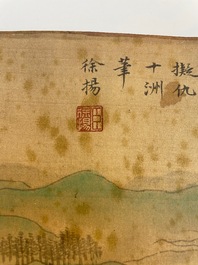 擬仇
十洲
筆
徐揚